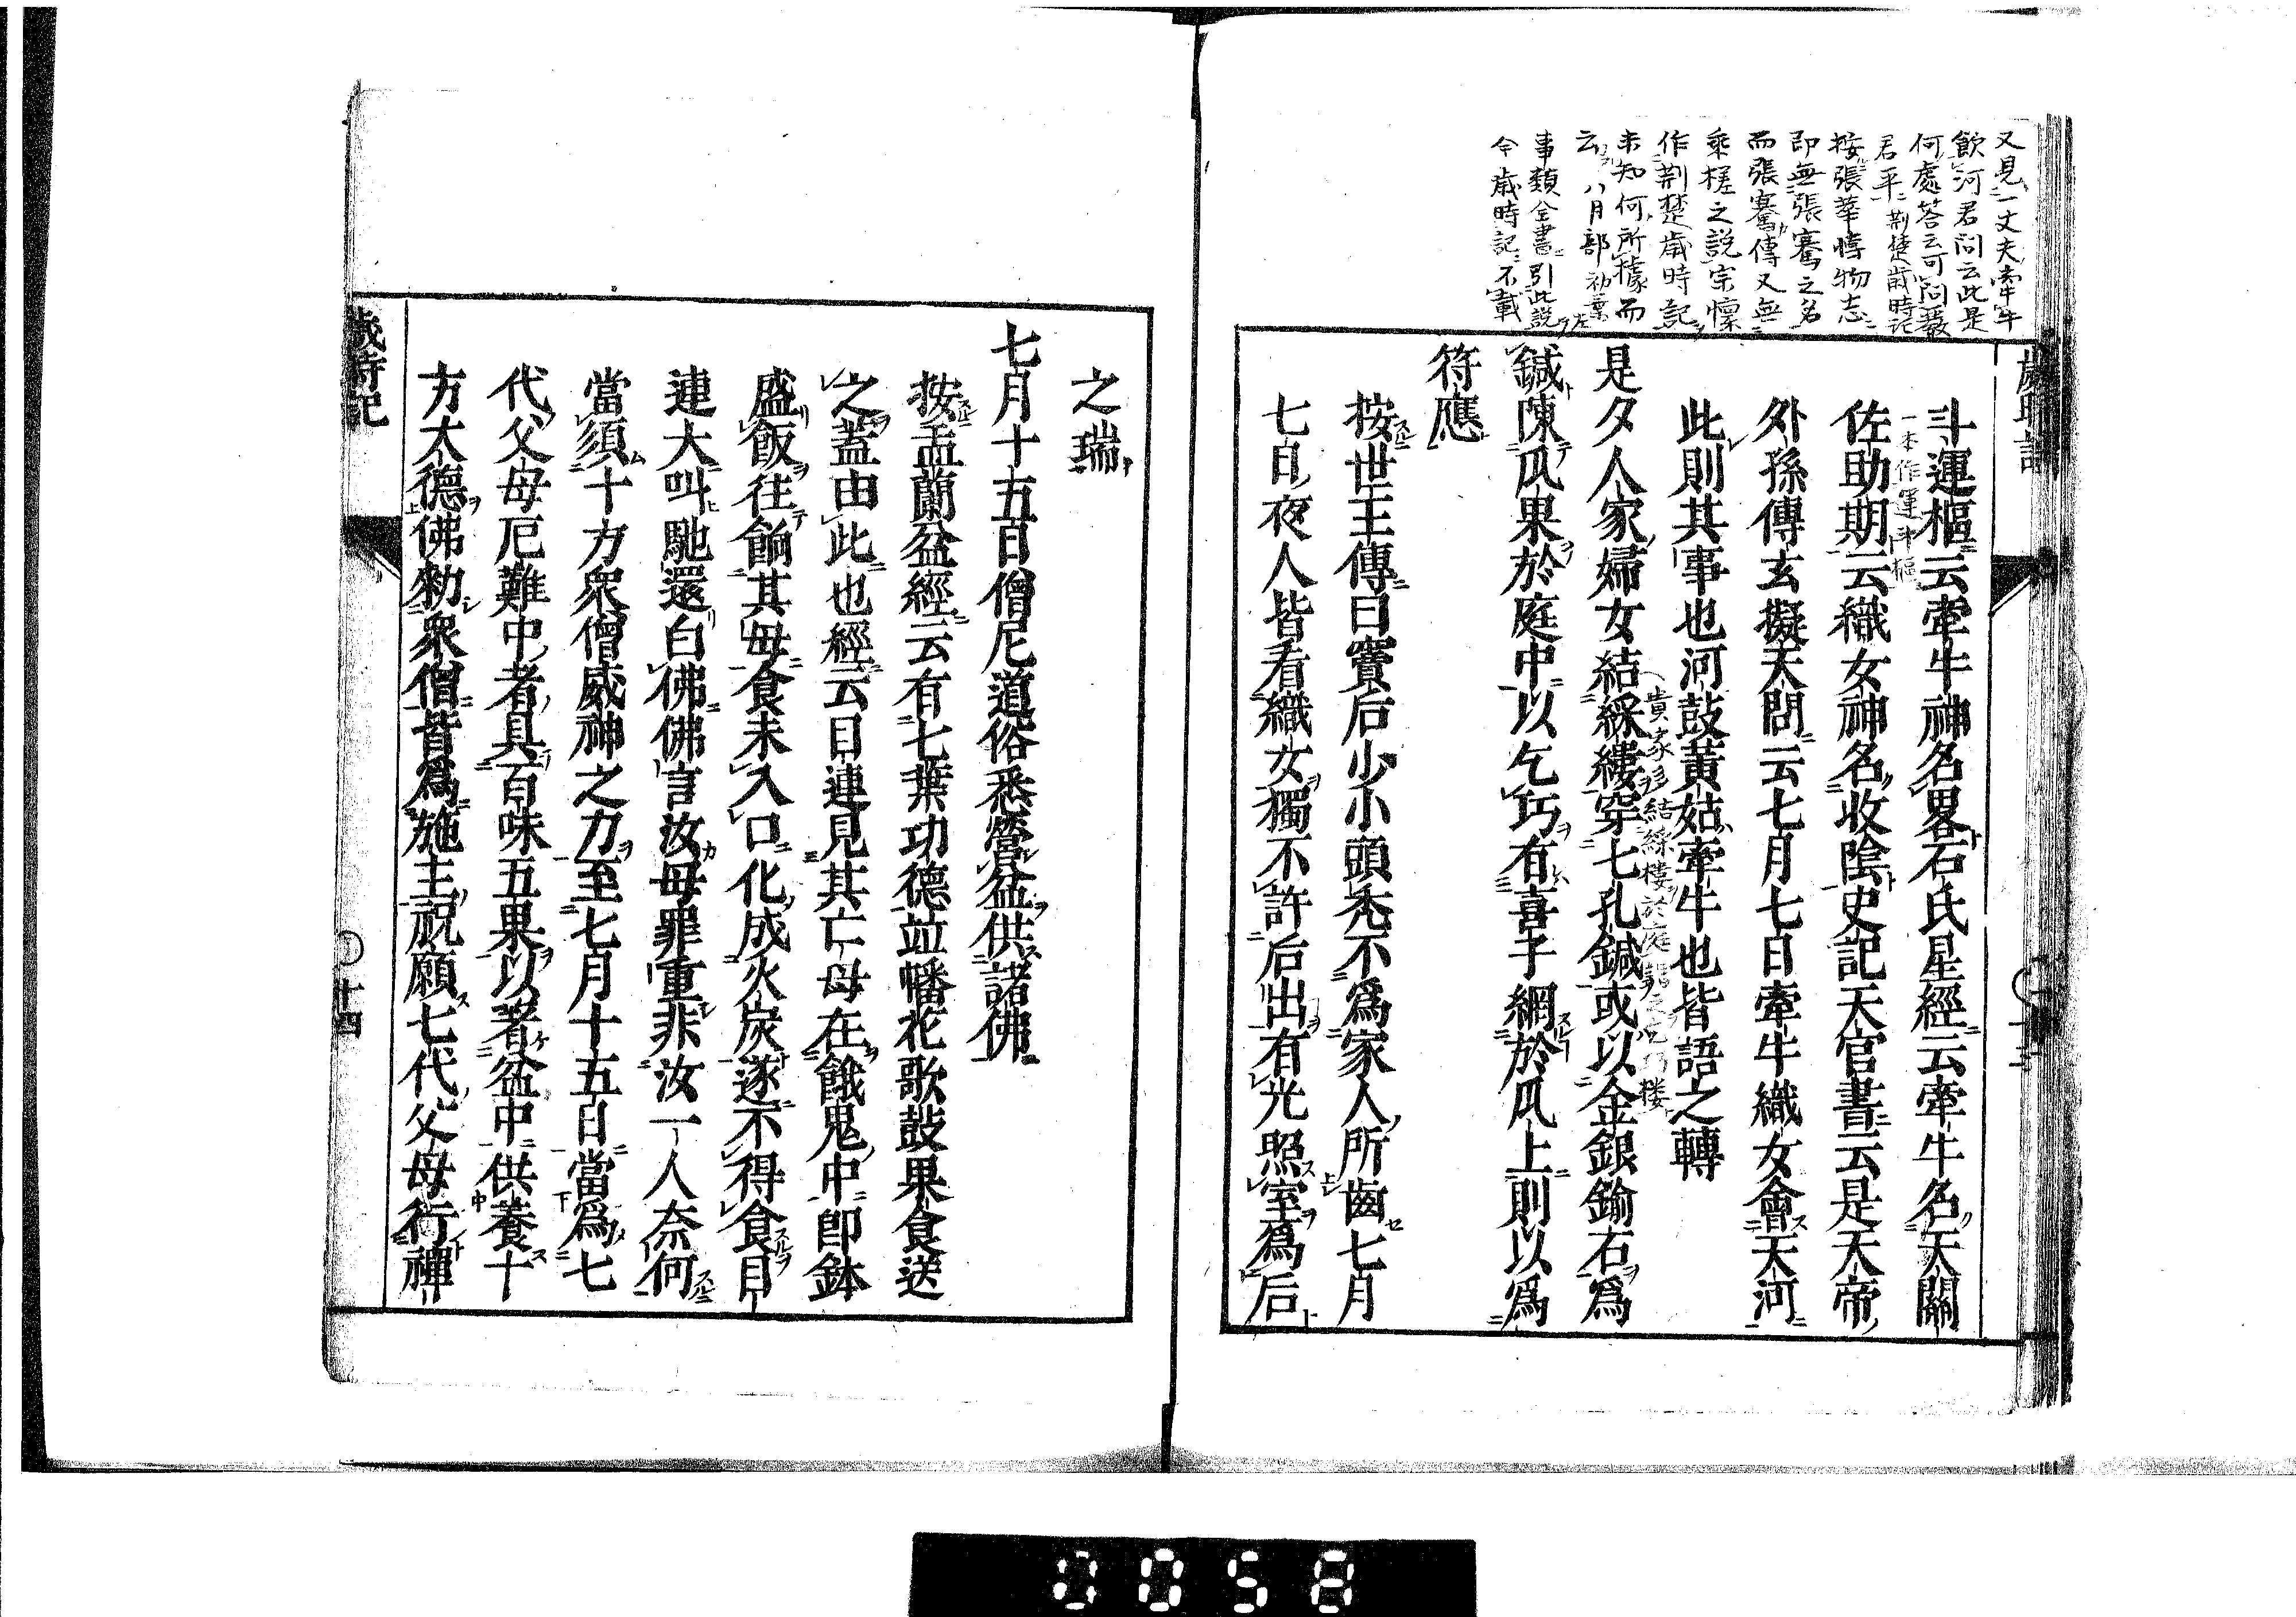 又見一丈夫牽牛
飲河君問云此是
何處答云可問嚴
君平荊楚歳時記
按張華博物志
即無張騫之名
而張騫傳又無
乘槎之説宗懍
作荊楚歳時記
未知何所據而
云 八月部
事類全書引此説
今歳時記不載
歲時記
斗運樞云牽牛神名畧石氏星經云牽牛名天關
一本作運斗樞
佐助期云織女神名收陰史記天官書云是天帝
外孫傳玄擬天問云七月七日牽牛織女會天河
此則其事也河鼓黃姑牽牛也皆語之轉
是夕人家婦女結綵縷穿七孔鍼或以金銀鍮石爲
鍼陳瓜果於庭中以乞巧有喜子網於瓜上則以爲
符應
按世王傳曰竇后少小頭禿不爲家人所齒七月
七日夜人皆看織女獨不許后出有光照室爲后
之瑞
七月十五日僧尼道俗悉營盆供諸佛
按盂蘭盆經云有七葉功德竝幡花歌鼓果食送
之蓋由此也經云目連見其亡母在餓鬼中即鉢
盛飯往餉其母食未入口化成火炭遂不得食目
連大叫馳還白佛佛言汝母罪重非汝一人奈何
當須十方衆僧威神之力至七月十五日當爲七
代父母厄難中者具百味五果以著盆中供養十
方大德佛勅衆僧皆爲施主祝願七代父母行禪
歲時記
十四
0058